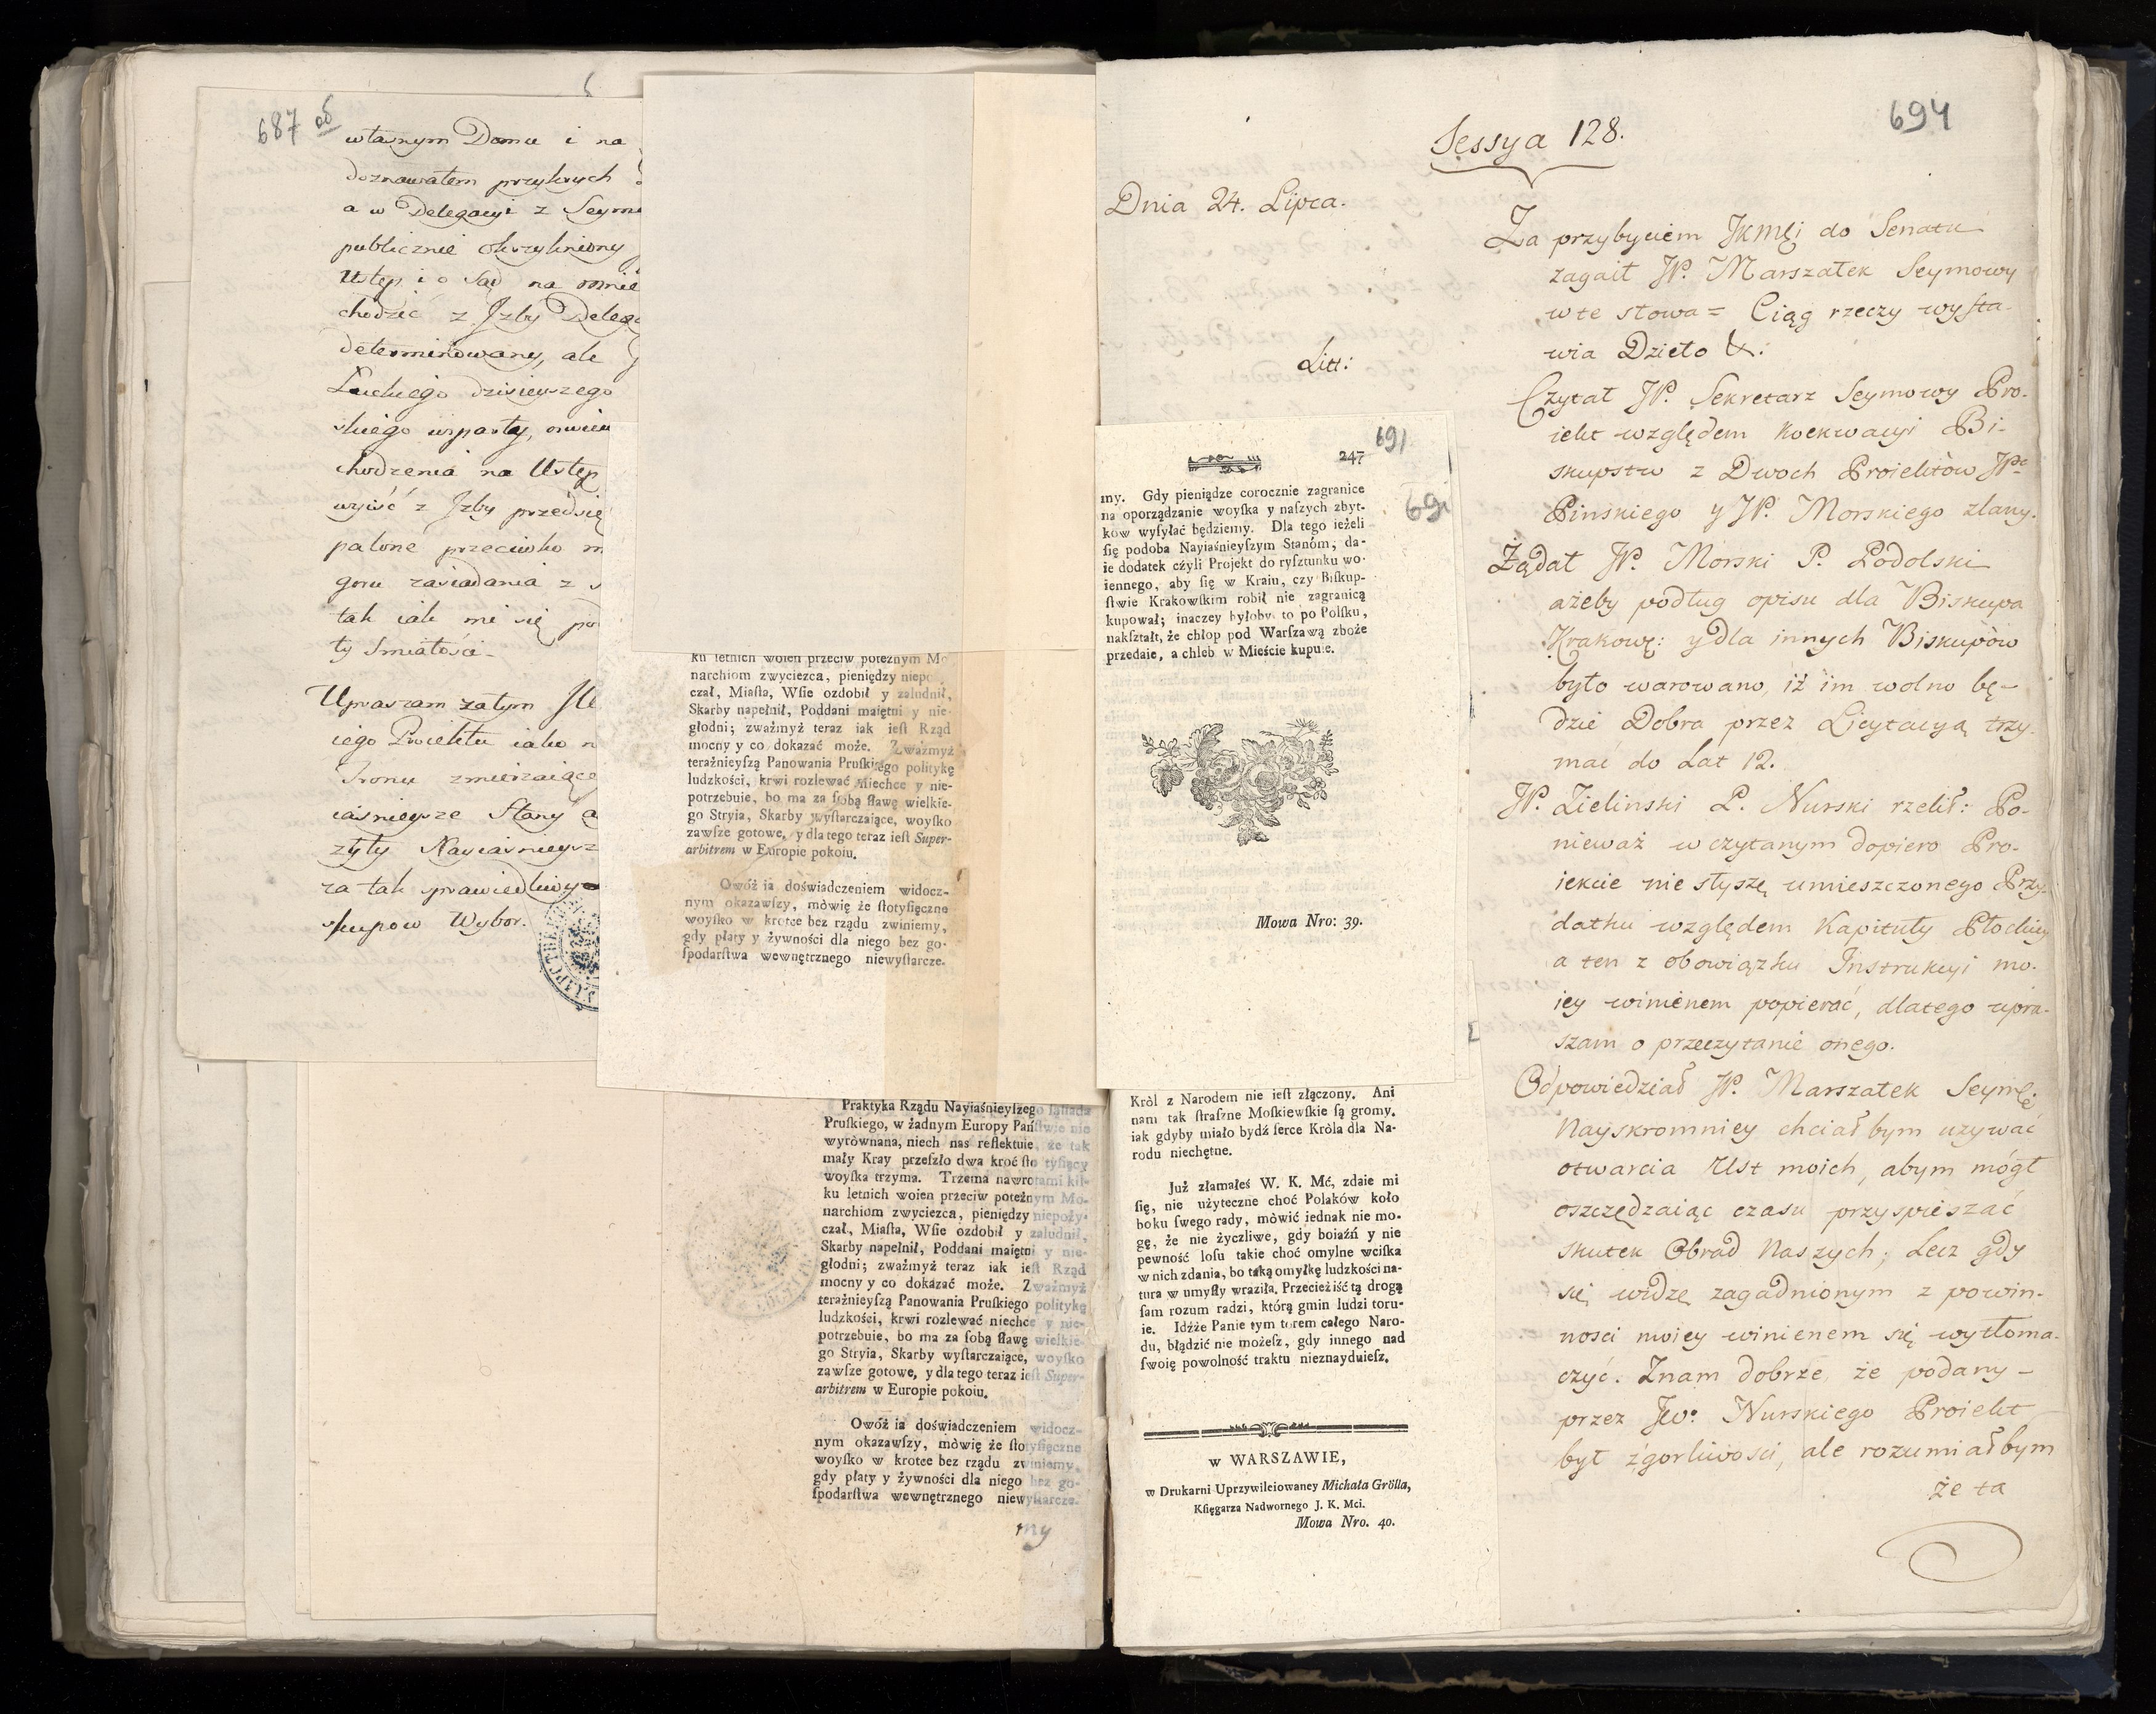 687 об
własnym Domu i na
doznawałem przykrych
a w Delegacyi z Seymu
publicznie okrzykniony
Ustęp i o Sąd na mnie
chodzić z Jzby Delega
determinowany, ale
Luckiego dzisieyszego
skiego wsparty,
chodzenia na Ustęp
wyiść z Jzby przedsię
palone przeciwko m
goru zasiadania z
tak iak mi się po
ty Smiałości
Upraszam zatym
iego Proiektu iako n
Tronu zmierzaiące
iaśnieysze Stany a
zyły Nayiaśnieysz
za tak sprawiedliwy
skupow Wybor.
ku letnich woien przeciw potężnym Mo
narchiom zwyciezca, pieniędzy niepo
czał, Miaſta, Wſie ozdobił y zaludnił,
Skarby napełnił, Poddani maiętni y nie-
głodni; zważmyż teraz iak ieſt Rząd
mocny y co dokazać może. Zważmyż
teraźnieyſzą Panowania Pruſkiego politykę
ludzkości, krwi rozlewać niechce y nie-
potrzebuie, bo ma za ſobą ſławę wielkie-
go Stryia, Skarby wyſtarczaiące, woyſko
zawſze gotowe, y dla tego teraz ieſt Super-
arbitrem w Europie pokoiu.
Owóż ia doświadczeniem widocz-
nym okazawſzy, mòwię że ſtotyſięczne
woyſko w krotce bez rządu zwiniemy,
gdy płaty y żywności dla niego bez go-
ſpodarſtwa wewnętrznego niewyſtarcze-
Praktyka Rządu Nayiaśnieyſzego ſąſiada
Pruſkiego, w żadnym Europy Pańſtwie nie
wyrównana, niech nas reflektuie, że tak
mały Kray przeſzło dwa kroć ſto tyſięcy
woyſka trzyma. Trzema nawrotami kil-
ku letnich woien przeciw potężnym Mo-
narchiom zwyciezca, pieniędzy niepoży-
czał, Miaſta, Wſie ozdobił y zaludnił,
Skarby napełnił, Poddani maiętni y nie-
głodni; zważmyż teraz iak ieſt Rząd
mocny y co dokazać może. Zważmyż
teraźnieyſzą Panowania Pruſkiego politykę
ludzkości, krwi rozlewać niechce y nie-
potrzebuie, bo ma za ſobą ſławę wielkie-
go Stryia, Skarby wyſtarczaiące, woyſko
zawſze gotowe, y dla tego teraz ieſt Super-
arbitrem w Europie pokoiu.
Owóż ia doświadczeniem widocz-
nym okazawſzy, mòwię że ſtotyſięczne
woyſko w krotce bez rządu zwiniemy,
gdy płaty y żywności dla niego bez go-
ſpodarſtwa wewnętrznego niewyſtarcze-
my
694
Sessya 128.
Dnia 24. Lipca.
Litt:
247
691
691
my. Gdy pieniądze corocznie zagranice
na oporządzanie woyſka y naſzych zbyt-
ków wyſyłać będziemy. Dla tego ieżeli
ſię podoba Nayiaśnieyſzym Stanóm, da-
ie dodatek czyli Projekt do ryſztunku wo-
iennego, aby ſię w Kraiu, czy Biſkup-
ſtwie Krakowſkim robił nie zagranicą
kupował; inaczey byłoby to po Polſku,
nakſztałt, że chłop pod Warſzawą zboże
przedaie, a chleb w Mieście kupuie.
Mowa Nro: 39.
Kròl z Narodem nie ieſt złączony. Ani
nam tak ſtraſzne Moſkiewſkie ſą gromy,
iak gdyby miało bydź ſerce Kròla dla Na-
rodu niechętne.
Już złamałeś W. K. Mć, zdaie mi
ſię, nie użyteczne choć Polaków koło
boku ſwego rady, mòwić iednak nie mo-
gę, że nie życzliwe, gdy boiaźń y nie
pewność loſu takie choć omylne wciſka
w nich zdania, bo taką omyłkę ludzkości na-
tura w umyſły wraziła. Przecież iść tą drogą
ſam rozum radzi, którą gmin ludzi toru-
ie. Idźże Panie tym torem całego Naro-
du, błądzić nie możeſz, gdy innego nad
ſwoię powolność traktu nieznayduieſz.
w WARSZAWIE,
w Drukarni Uprzywileiowaney Michała Grölla,
Kſięgarza Nadwornego J. K. Mci.
Mowa Nro. 40.
Za przybyciem JKMci do Senatu
zagait JP. Marszałek Seymowy
w te słowa = Ciąg rzeczy wysta-
wia Dzieło &:
Czytał JP. Sekretarz Seymowy Pro-
iekt względem Koekwacyi Bi-
skupstw z Dwoch Proiektów JPc
Pinskiego y JP. Morskiego zlany.
Żądał JP. Morski P. Podolski
ażeby podług opisu dla Biskupa
Krakowę: y dla innych Biskupów
było warowano, iż im wolno bę-
dzie Dobra przez Licytacyą trzy-
mać do Lat 12.
JP. Zielinski P. Nurski rzekł: Po-
nieważ w czytanym dopiero Pro-
iekcie nie słyszę umieszczonego Przy-
datku względem Kapituły Płockiey
a ten z obowiązku Instrukcyi mo-
iey winienem popierać, dlatego upra-
szam o przeczytanie onego.
Odpowiedział JP. Marszałek Seymę:
Nayskromniey chciałbym używać
otwarcia Ust moich, abym mógł
oszczędzaiąc czasu przyspieszać
skutek Obrad Naszych; Lecz gdy
się widzę zagadnionym z powin-
nosci moiey winienem się wytłoma-
czyć. Znam dobrze, że podany
przez Jw: Nurskiego Proiekt
był z gorliwosci, ale rozumiałbym
że ta